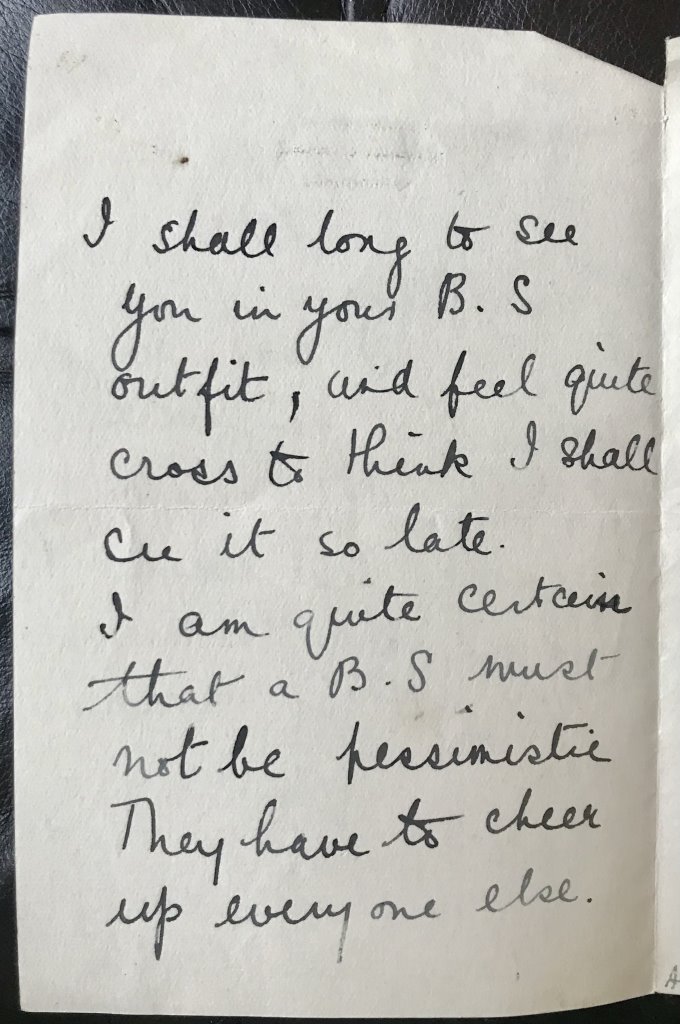 I shall long to see
you in your B. S
outfit, and feel quite
cross to think I shall
see it so late.
I am quite certain
that a B. S must
not be pessimistic
They have to cheer
up everyone else.